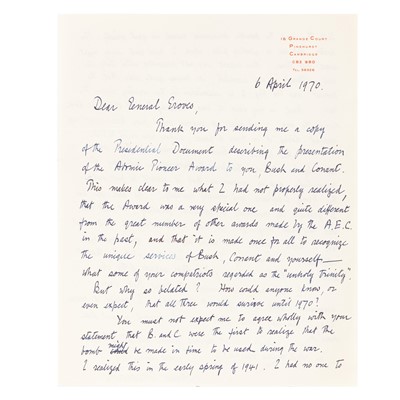 16 Grange Court
Pinehurst
Cambridge
CB3 9BD
6 April 1970.
Dear General Groves,
Thank you for sending me a copy
of the Presidential Document describing the presentation
of the Atomic Pioneer Award to you, Bush and Conant.
This makes clear to me what I had not properly realized,
that the Award was a very special one and quite different
from the great member of other awards made by the A.E.C.
in the past, and that "it is made once for all to recognize
the unique services of Bush, Conent and yourself —
what some of your compatriots regarded as the "unholy trinity".
But why so belated? How could anyone know, or
even expect, that all three would survive until 1970?
You must not expect me to agree wholly with your
statement that B. and C were the first to realize that the
bomb might be made in time to be used during the war.
I realized this in the early spring of 1941. I had no one to